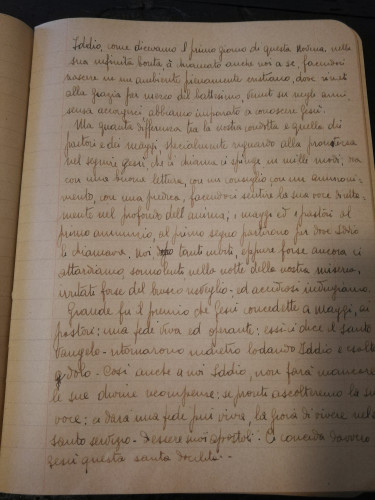 Iddio, come dicevamo il primo giorno di questa Novena, nella
sua infinita bontà à chiamato anche noi a se, facendoci
nascere in un ambiente pienamente cristiano, dove rinati
alla grazia per mezzo del battesimo, venuti su negli anni
senza accorgerci abbiamo imparato a conoscere Gesù.
Ma quanta differenza tra la nostra condotta e quella dei
pastori e dei maggi, specialmente riguardo alla prontezza
nel seguire Gesù, che ci chiama ci spinge in mille modi; ora
con una buona lettura, con un consiglio, con un ammoni-
mento, con una predica, facendoci sentire la sua voce diretta-
mente nel profondo dell'anima; i maggi ed i pastori al
primo annunzio, al primo segno partirono per dove Iddio
li chiamava, noi tanti inviti, eppure forse ancora ci
attardiamo, sonnolenti nella notte della nostra miseria,
irritati forse del brusco risveglio ed accidiosi indugiamo.
Grande fu il premio che Gesù concedette ai maggi, ai
pastori: una fede viva ed operante: essi ci dice il santo
Vangelo - ritornarono indietro lodando Iddio e esaltan
dolo - Così anche a noi Iddio, non farà mancare
le sue divine ricompense: se pronti ascolteremo la sua
voce: ci darà una fede più viva, la gioia di vivere nel
santo servizio - d'essere suoi apostoli - Ci conceda davvero
Gesù questa santa docilità -